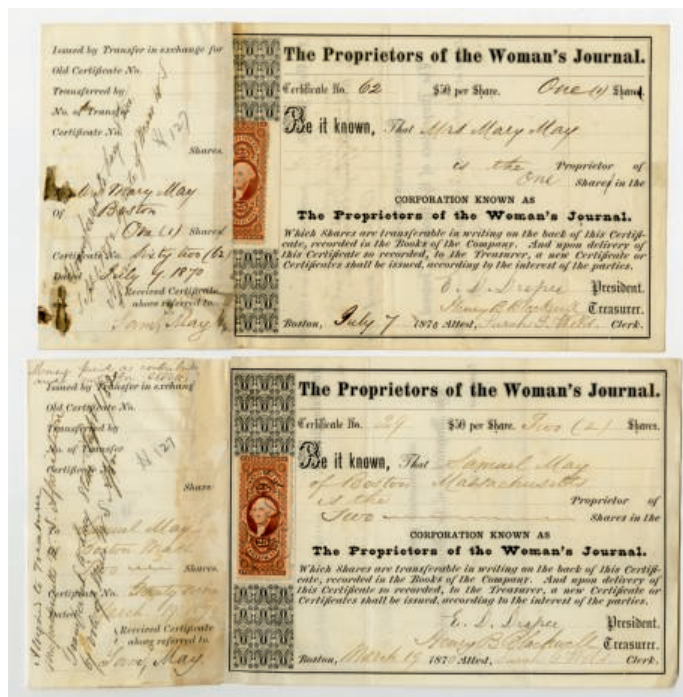 Issued by Transfer in exchange for
Old Certificate No.
Transferred by
No. of Transfer
Certificate No.
Shares.
№ 127
Mrs Mary May
Of Boston
One (1) Shares
Certificate No. Sixty two (62)
Dated July 7 1870
Received Certificate
above referred to.
Sam. May
The Proprietors of the Woman's Journal.
Certificate No. 62 $50 per Share. One (1) Share.
Be it known, That Mrs Mary May
is the Proprietor of
One Share in the
CORPORATION KNOWN AS
The Proprietors of the Woman's Journal.
Which Shares are transferable in writing on the back of this Certifi-
cate, recorded in the Books of the Company. And upon delivery of
this Certificate so recorded, to the Treasurer, a new Certificate or
Certificates shall be issued, according to the interest of the parties.
E. D. Draper President.
Henry B. Blackwell Treasurer.
Boston, July 7 1870 Attest, Sarah Clerk.
Money paid as
Issued by Transfer in exchange
Old Certificate No.
Transferred by
No. of Transfer
Certificate
Share
№ 127
Samuel May
Boston Mass
Shares.
Certificate No. Twenty nine
Dated March
Received Certificate
above referred to.
Sam. May
The Proprietors of the Woman's Journal.
Certificate No. 29 $50 per Share. Two (2) Shares.
Be it known, That Samuel May
of Boston Massachusetts
is the Proprietor of
Two Shares in the
CORPORATION KNOWN AS
The Proprietors of the Woman's Journal.
Which Shares are transferable in writing on the back of this Certifi-
cate, recorded in the Books of the Company. And upon delivery of
this Certificate so recorded, to the Treasurer, a new Certificate or
Certificates shall be issued, according to the interest of the parties.
E. D. Draper President.
Henry B. Blackwell Treasurer.
Boston, March 19 1870 Attest, Sarah Clerk.